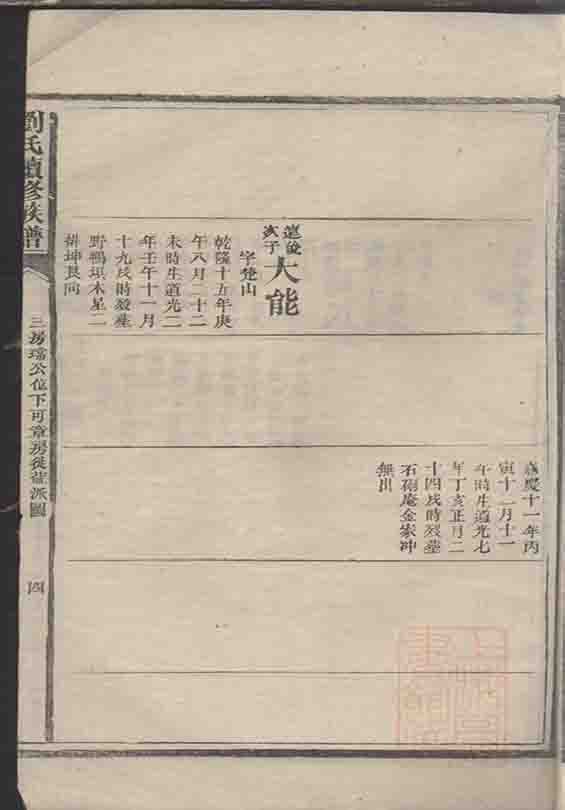 劉氏續修族譜
三房瑞公位下可章房後萱派圖
四
萱俊
次子
大能
字楚山
乾隆十五年庚
午八月二十二
未時生道光二
年壬午十一月
十九戌時歿塟
野鴨垻木星二
排坤艮向
嘉慶十一年丙
寅十二月十一
午時生道光七
年丁亥正月二
十四戌時歿塟
石砲庵金家冲
無出